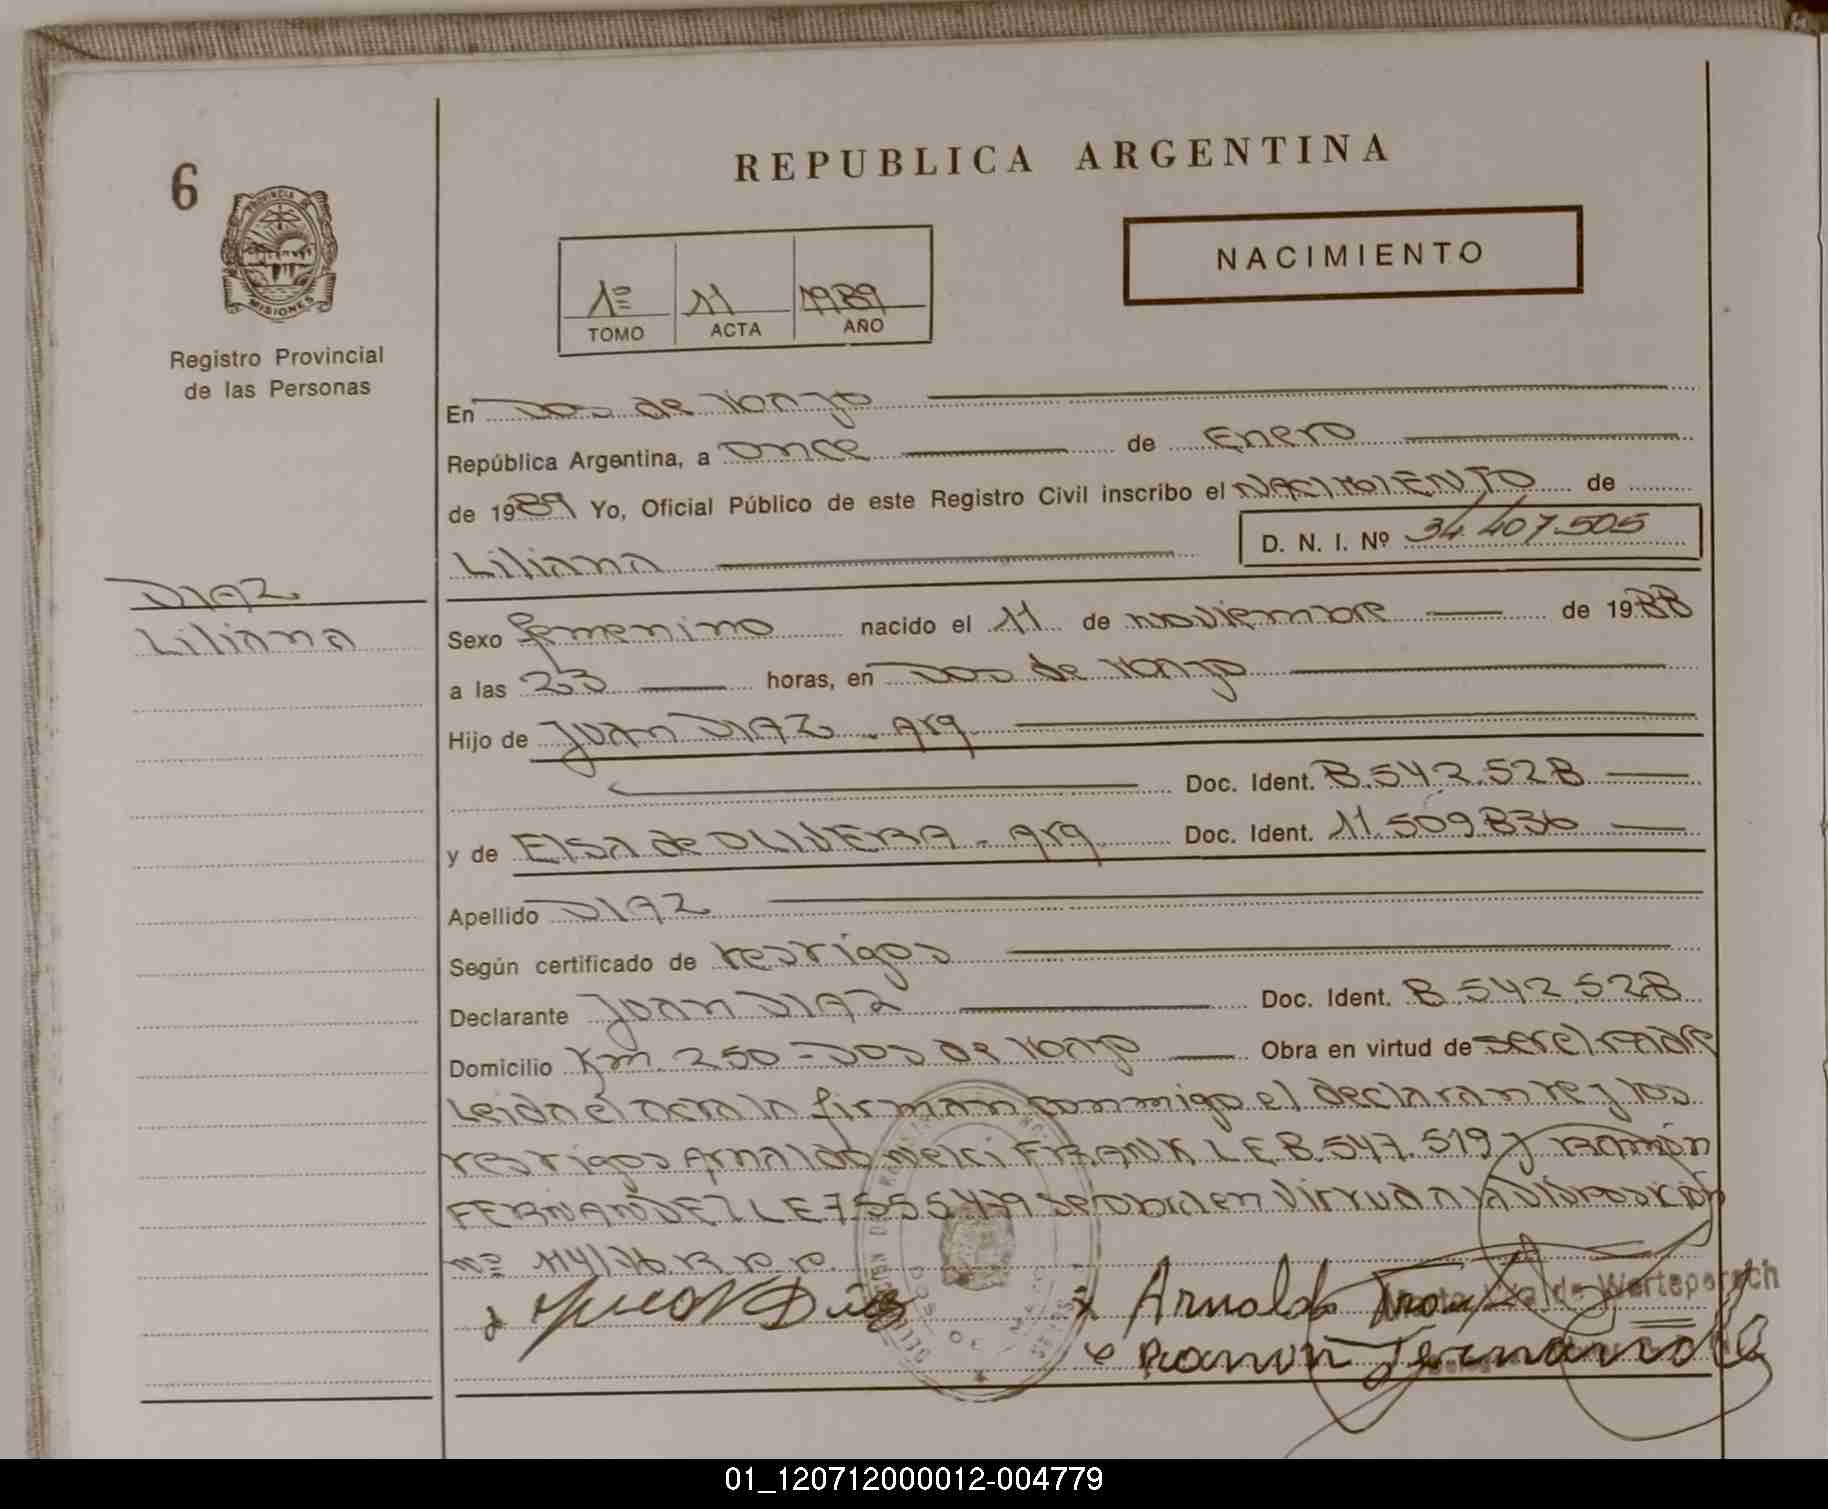 REPUBLICA ARGENTINA
6
PROVINCIA DE
MISIONES
Registro Provincial
de las Personas
NACIMIENTO
1º 11 1989
TOMO ACTA AÑO
En Dos de Mayo
República Argentina, a once de Enero
de 1989 Yo, Oficial Público de este Registro Civil inscribo el NACIMIENTO de
D. N. I. Nº 34.407.505
Liliana
DIAZ
Liliana
Sexo femenino nacido el 11 de noviembre de 1988
a las 23 horas, en Dos de Mayo
Hijo de Juan DIAZ - Arg
Doc. Ident. 8.542.528
y de Elsa de OLIVERA - Arg Doc. Ident. 11.509.836
Apellido DIAZ
Según certificado de testigos
Declarante Juan DIAZ Doc. Ident. 8.542.528
Domicilio Km. 250 - Dos de Mayo Obra en virtud de ser el Padre
Leida el acta la firman conmigo el declarante y los
testigos Arnaldo FRANK L.E 8.547.519 y Ramón
FERNANDEZ L E 7555479 se en Virtud a la Disposición
nº
Arnoldo
Ramon Fernandez
de Wertepersch
01_120712000012-004779